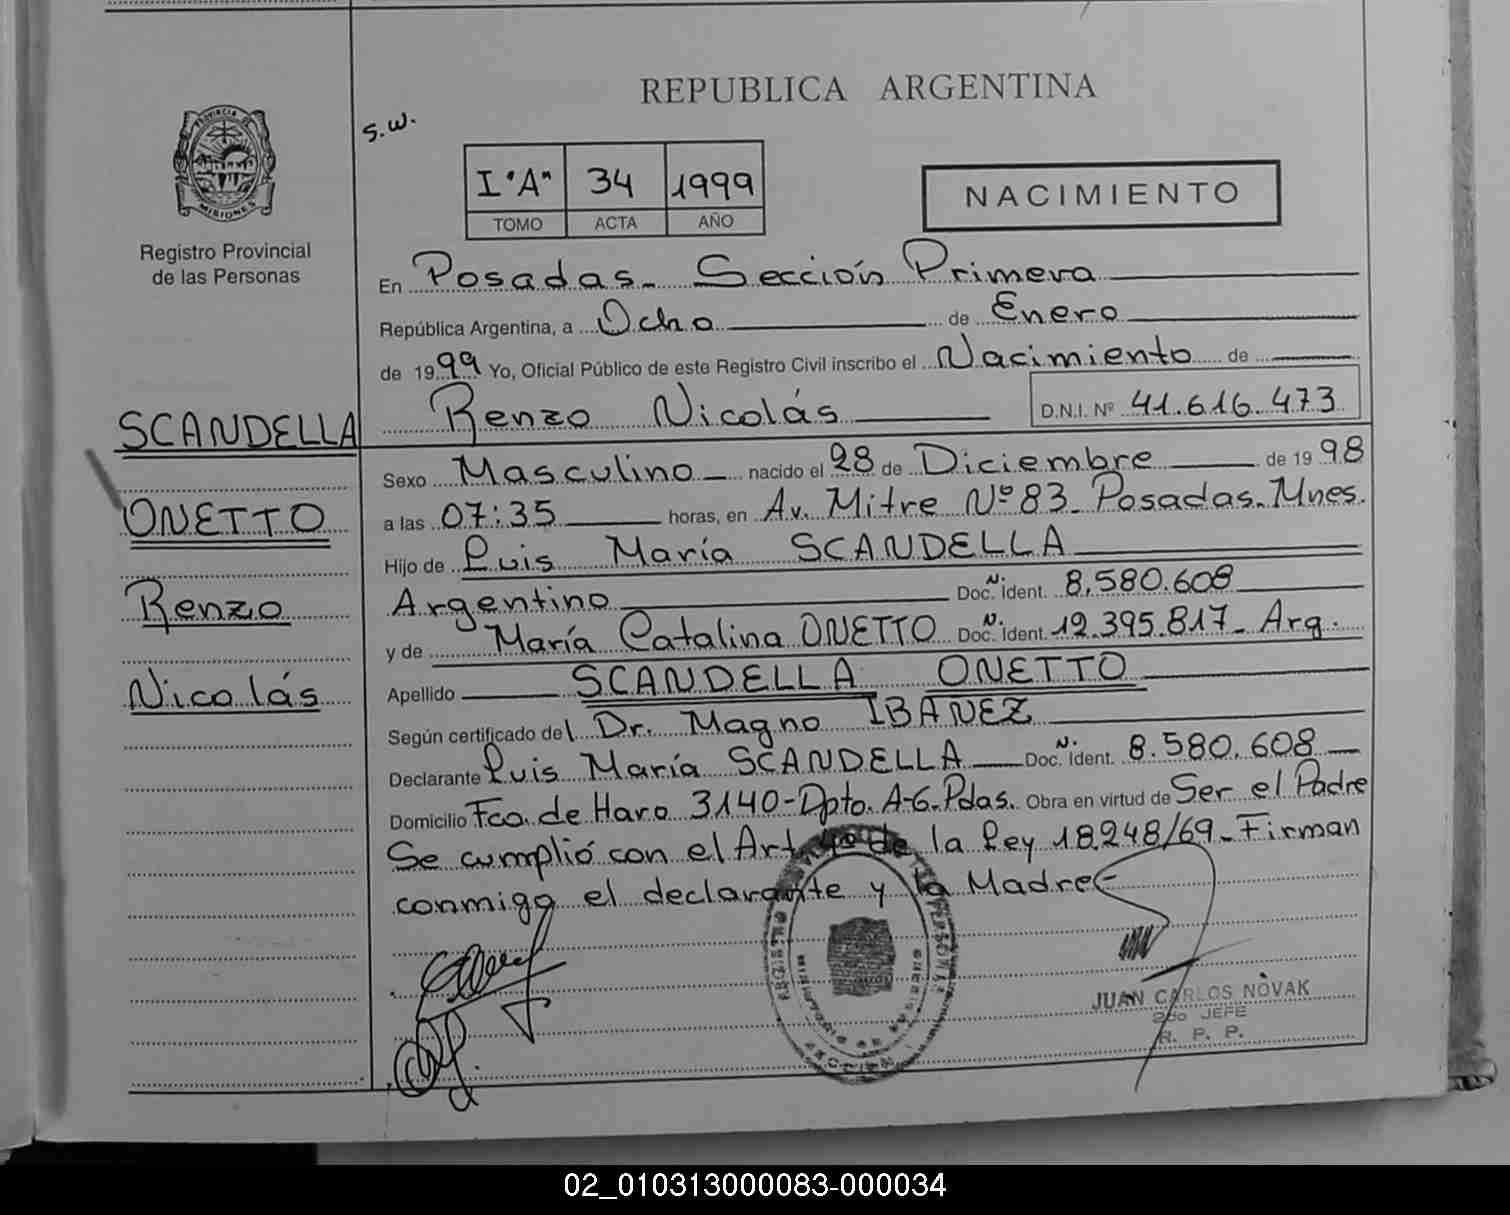 REPUBLICA ARGENTINA
PROVINCIA DE
MISIONES
Registro Provincial
de las Personas
s.w.
I "A" 34 1999
TOMO ACTA AÑO
NACIMIENTO
En Posadas - Sección Primera
República Argentina, a Ocho de Enero
de 1999 Yo, Oficial Público de este Registro Civil inscribo el Nacimiento de
Renzo Nicolás D.N.I. Nº 41.616.473
SCANDELLA
ONETTO
Renzo
Nicolás
Sexo Masculino nacido el 28 de Diciembre de 1998
a las 07:35 horas, en Av. Mitre Nº 83 - Posadas - Mnes.
Hijo de Luis María SCANDELLA
Argentino Doc. N. Ident. 8.580.608
y de María Catalina ONETTO Doc. N. Ident. 12.395.817 - Arg.
Apellido SCANDELLA ONETTO
Según certificado del Dr. Magno IBAÑEZ
Declarante Luis María SCANDELLA Doc. N. Ident. 8.580.608
Domicilio Fco. de Haro 3140 - Dpto. A-6. Pdas. Obra en virtud de Ser el Padre
Se cumplió con el Art. 4º de la Ley 18.248/69 - Firman
conmigo el declarante y la Madre -
JUAN CARLOS NOVAK
2do JEFE
R. P. P.
02_010313000083-000034